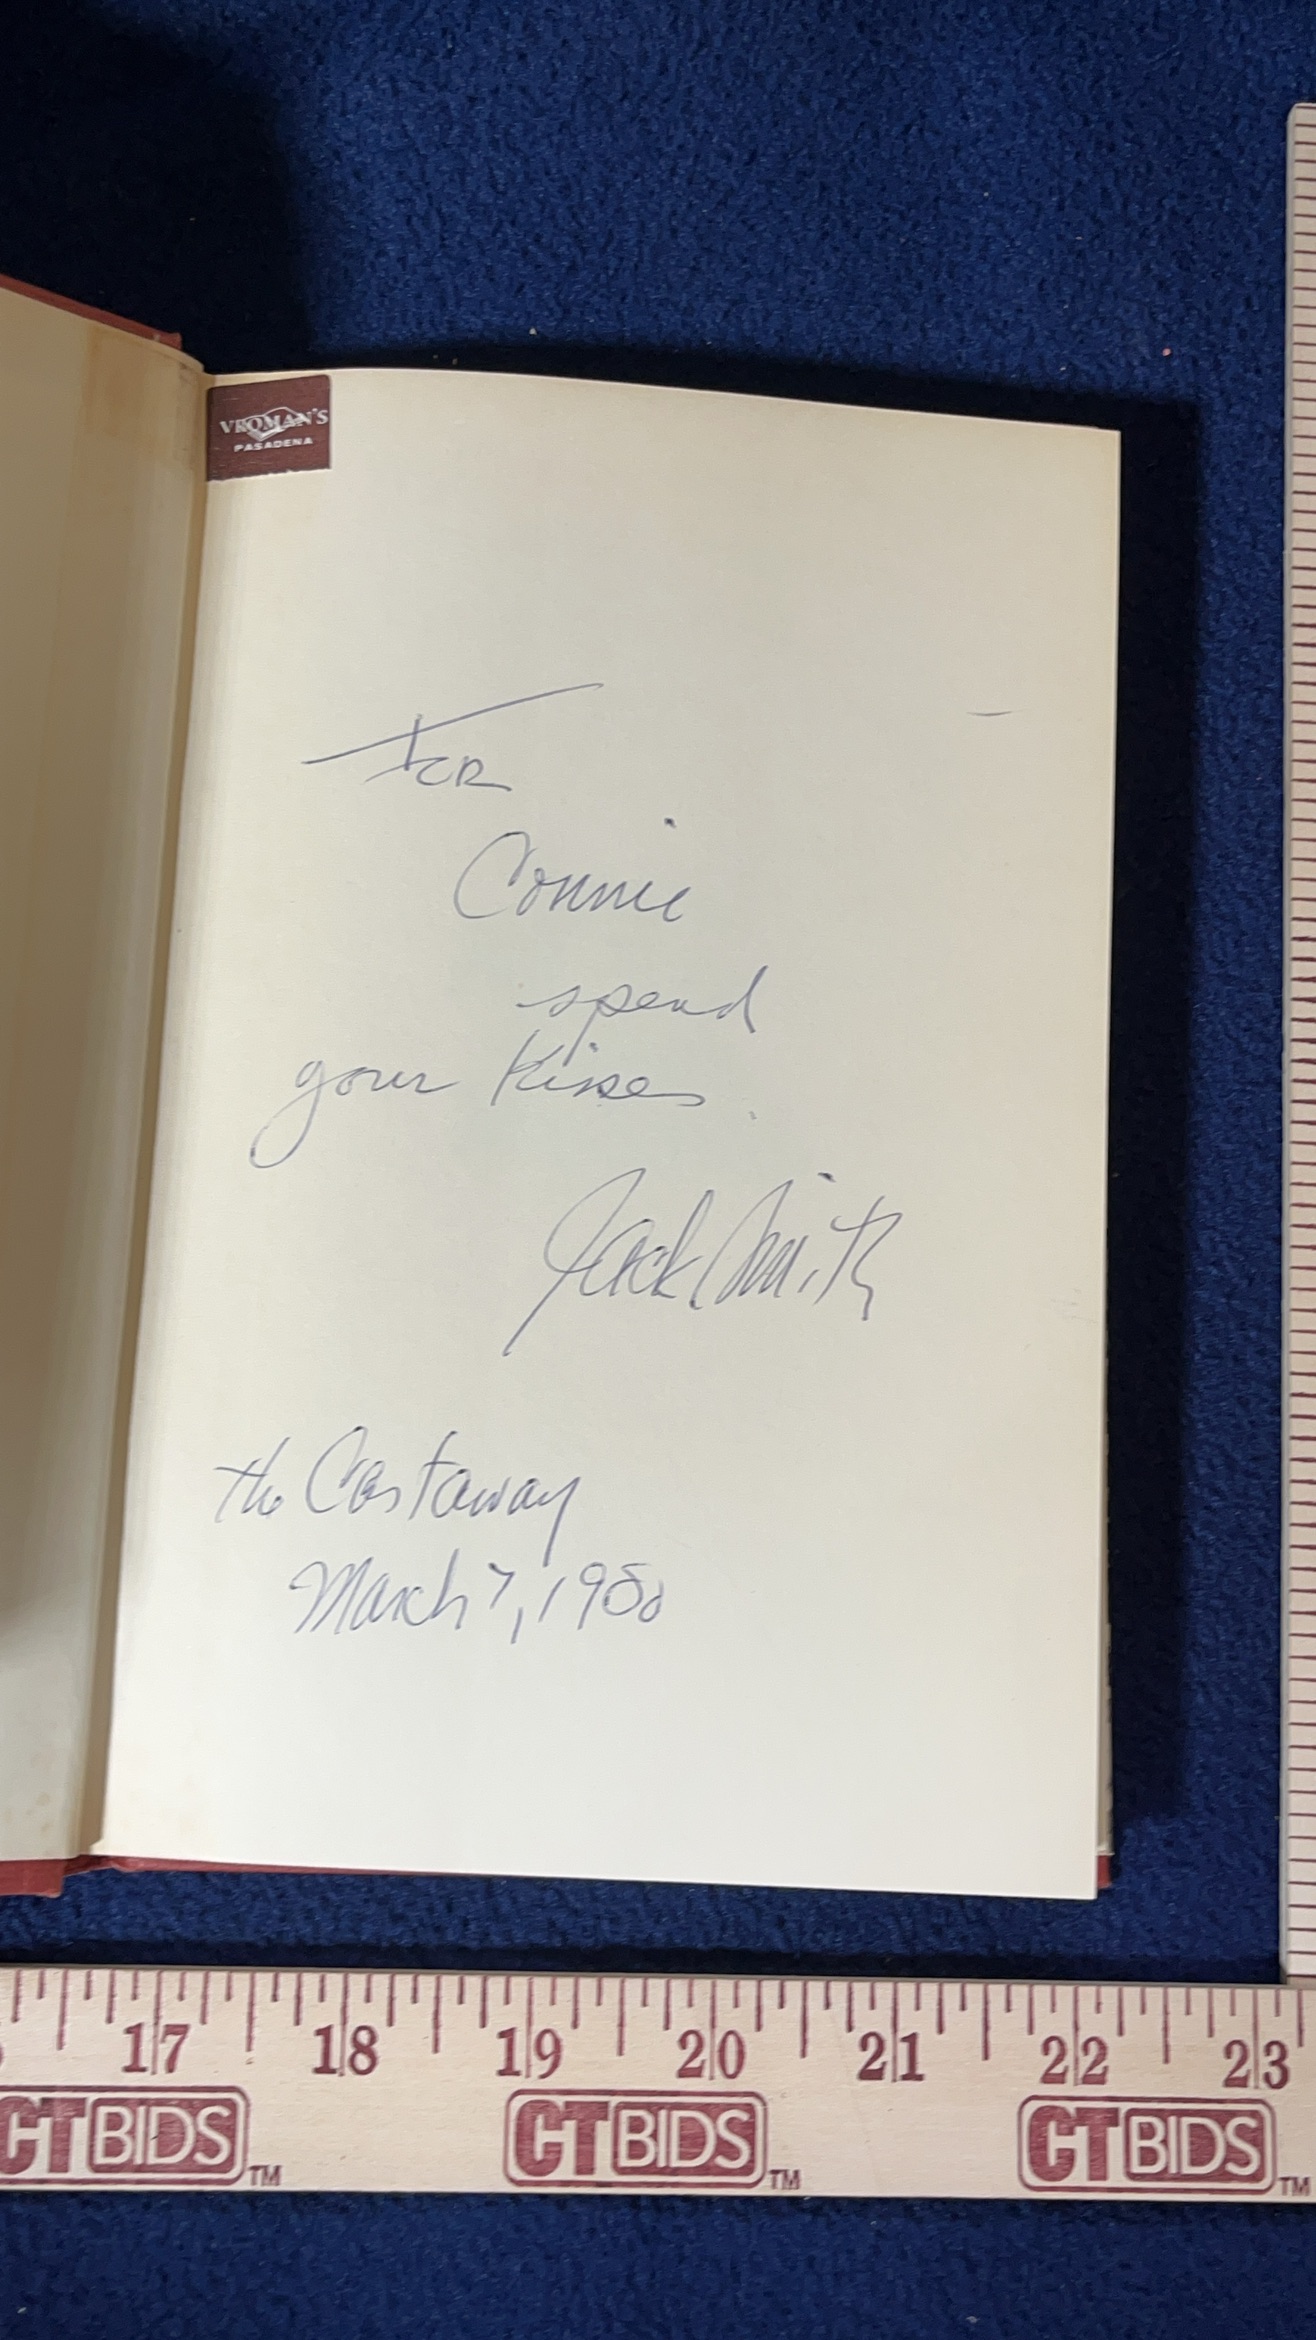 VROMAN'S
PASADENA
For
Connie
spend
your kisses.
Jack Smith
the Castaway
March 7, 1980
17 18 19 20 21 22 23
CTBIDS™ CTBIDS™ CTBIDS™